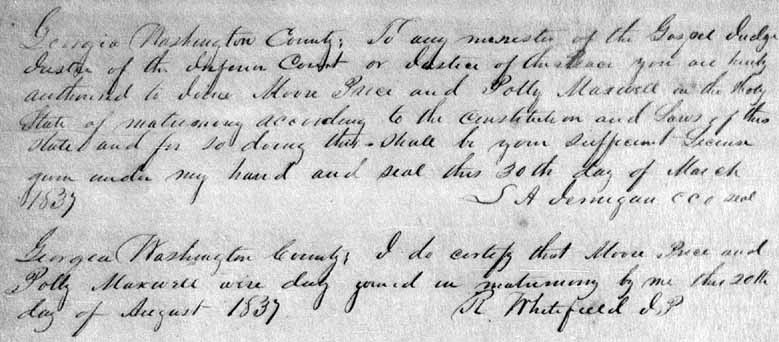 Georgia Washington County; To any minister of the Gospel Judge
Justice of the Inferior Court or Justice of the Peace you are hereby
authorised to Joine Moore Price and Polly Maxwell in the Holy
State of matrimony according to the constitution and Laws of this
state and for so doing this shall be your sufficient License
given under my hand and seal this 30th day of March
1837 S A Jernigan CCO seal
Georgia Washington County; I do certify that Moore Price and
Polly Maxwell were duly joined in matrimony by me this 20th
day of August 1837 R. Whitefield J P